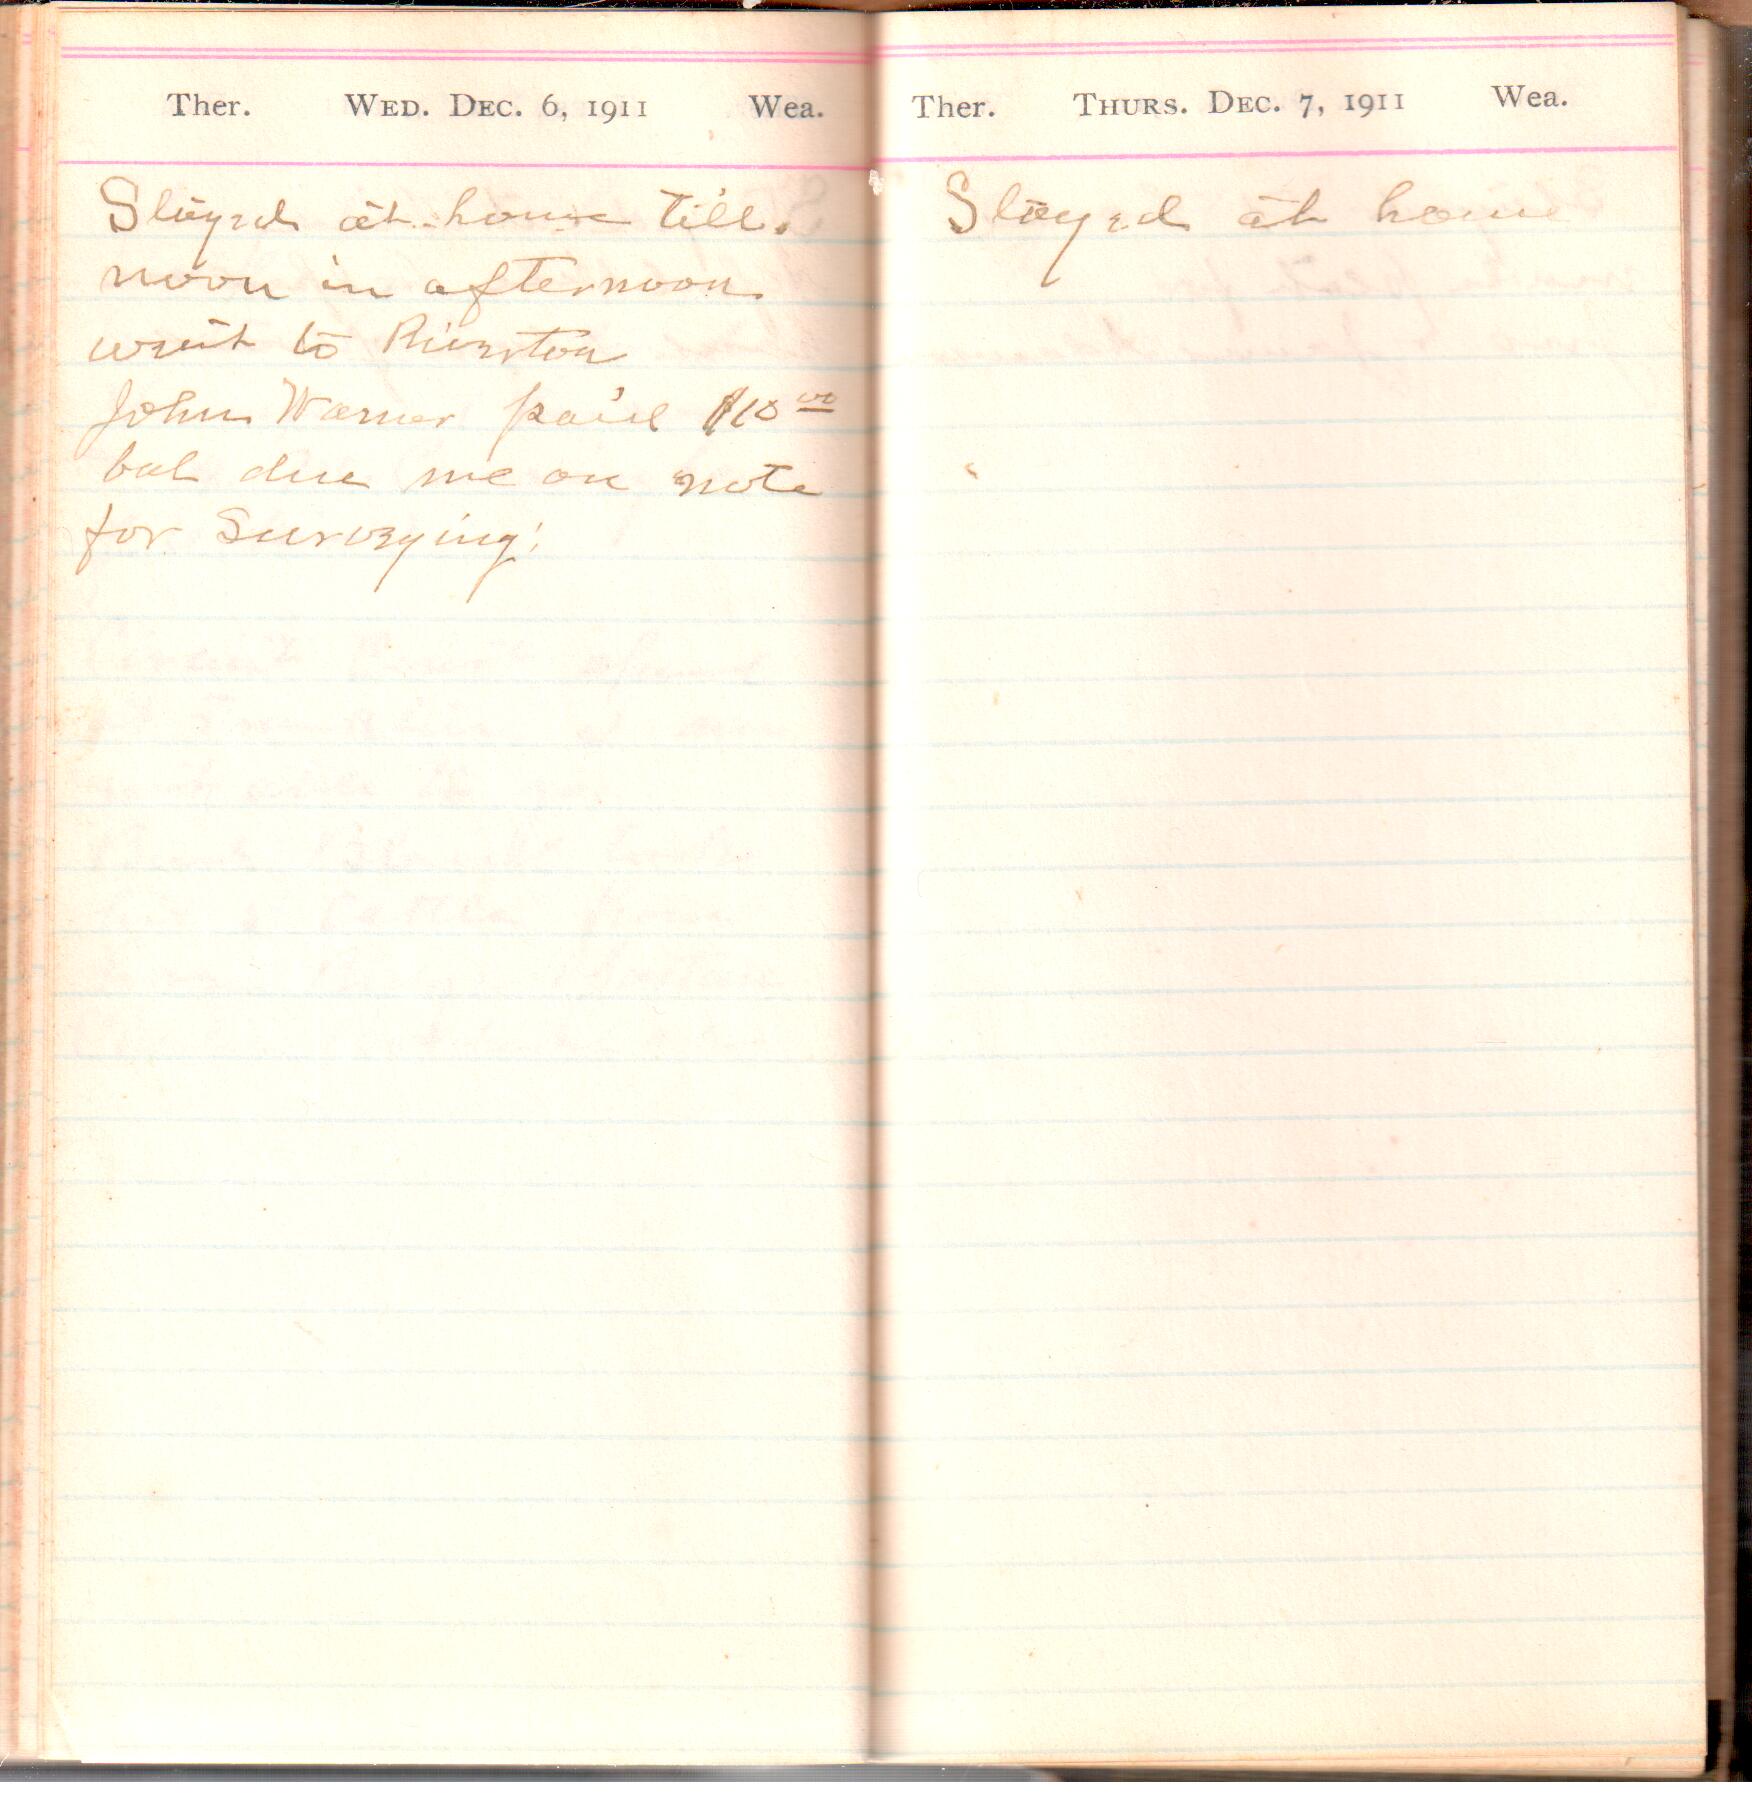 Ther. WED. DEC. 6, 1911 Wea.
Stayed at home till
noon in afternoon
went to Riverton
John Warner paid $10 00
bal due me on note
for Surveying.
Ther. THURS. DEC. 7, 1911 Wea.
Stayed at home